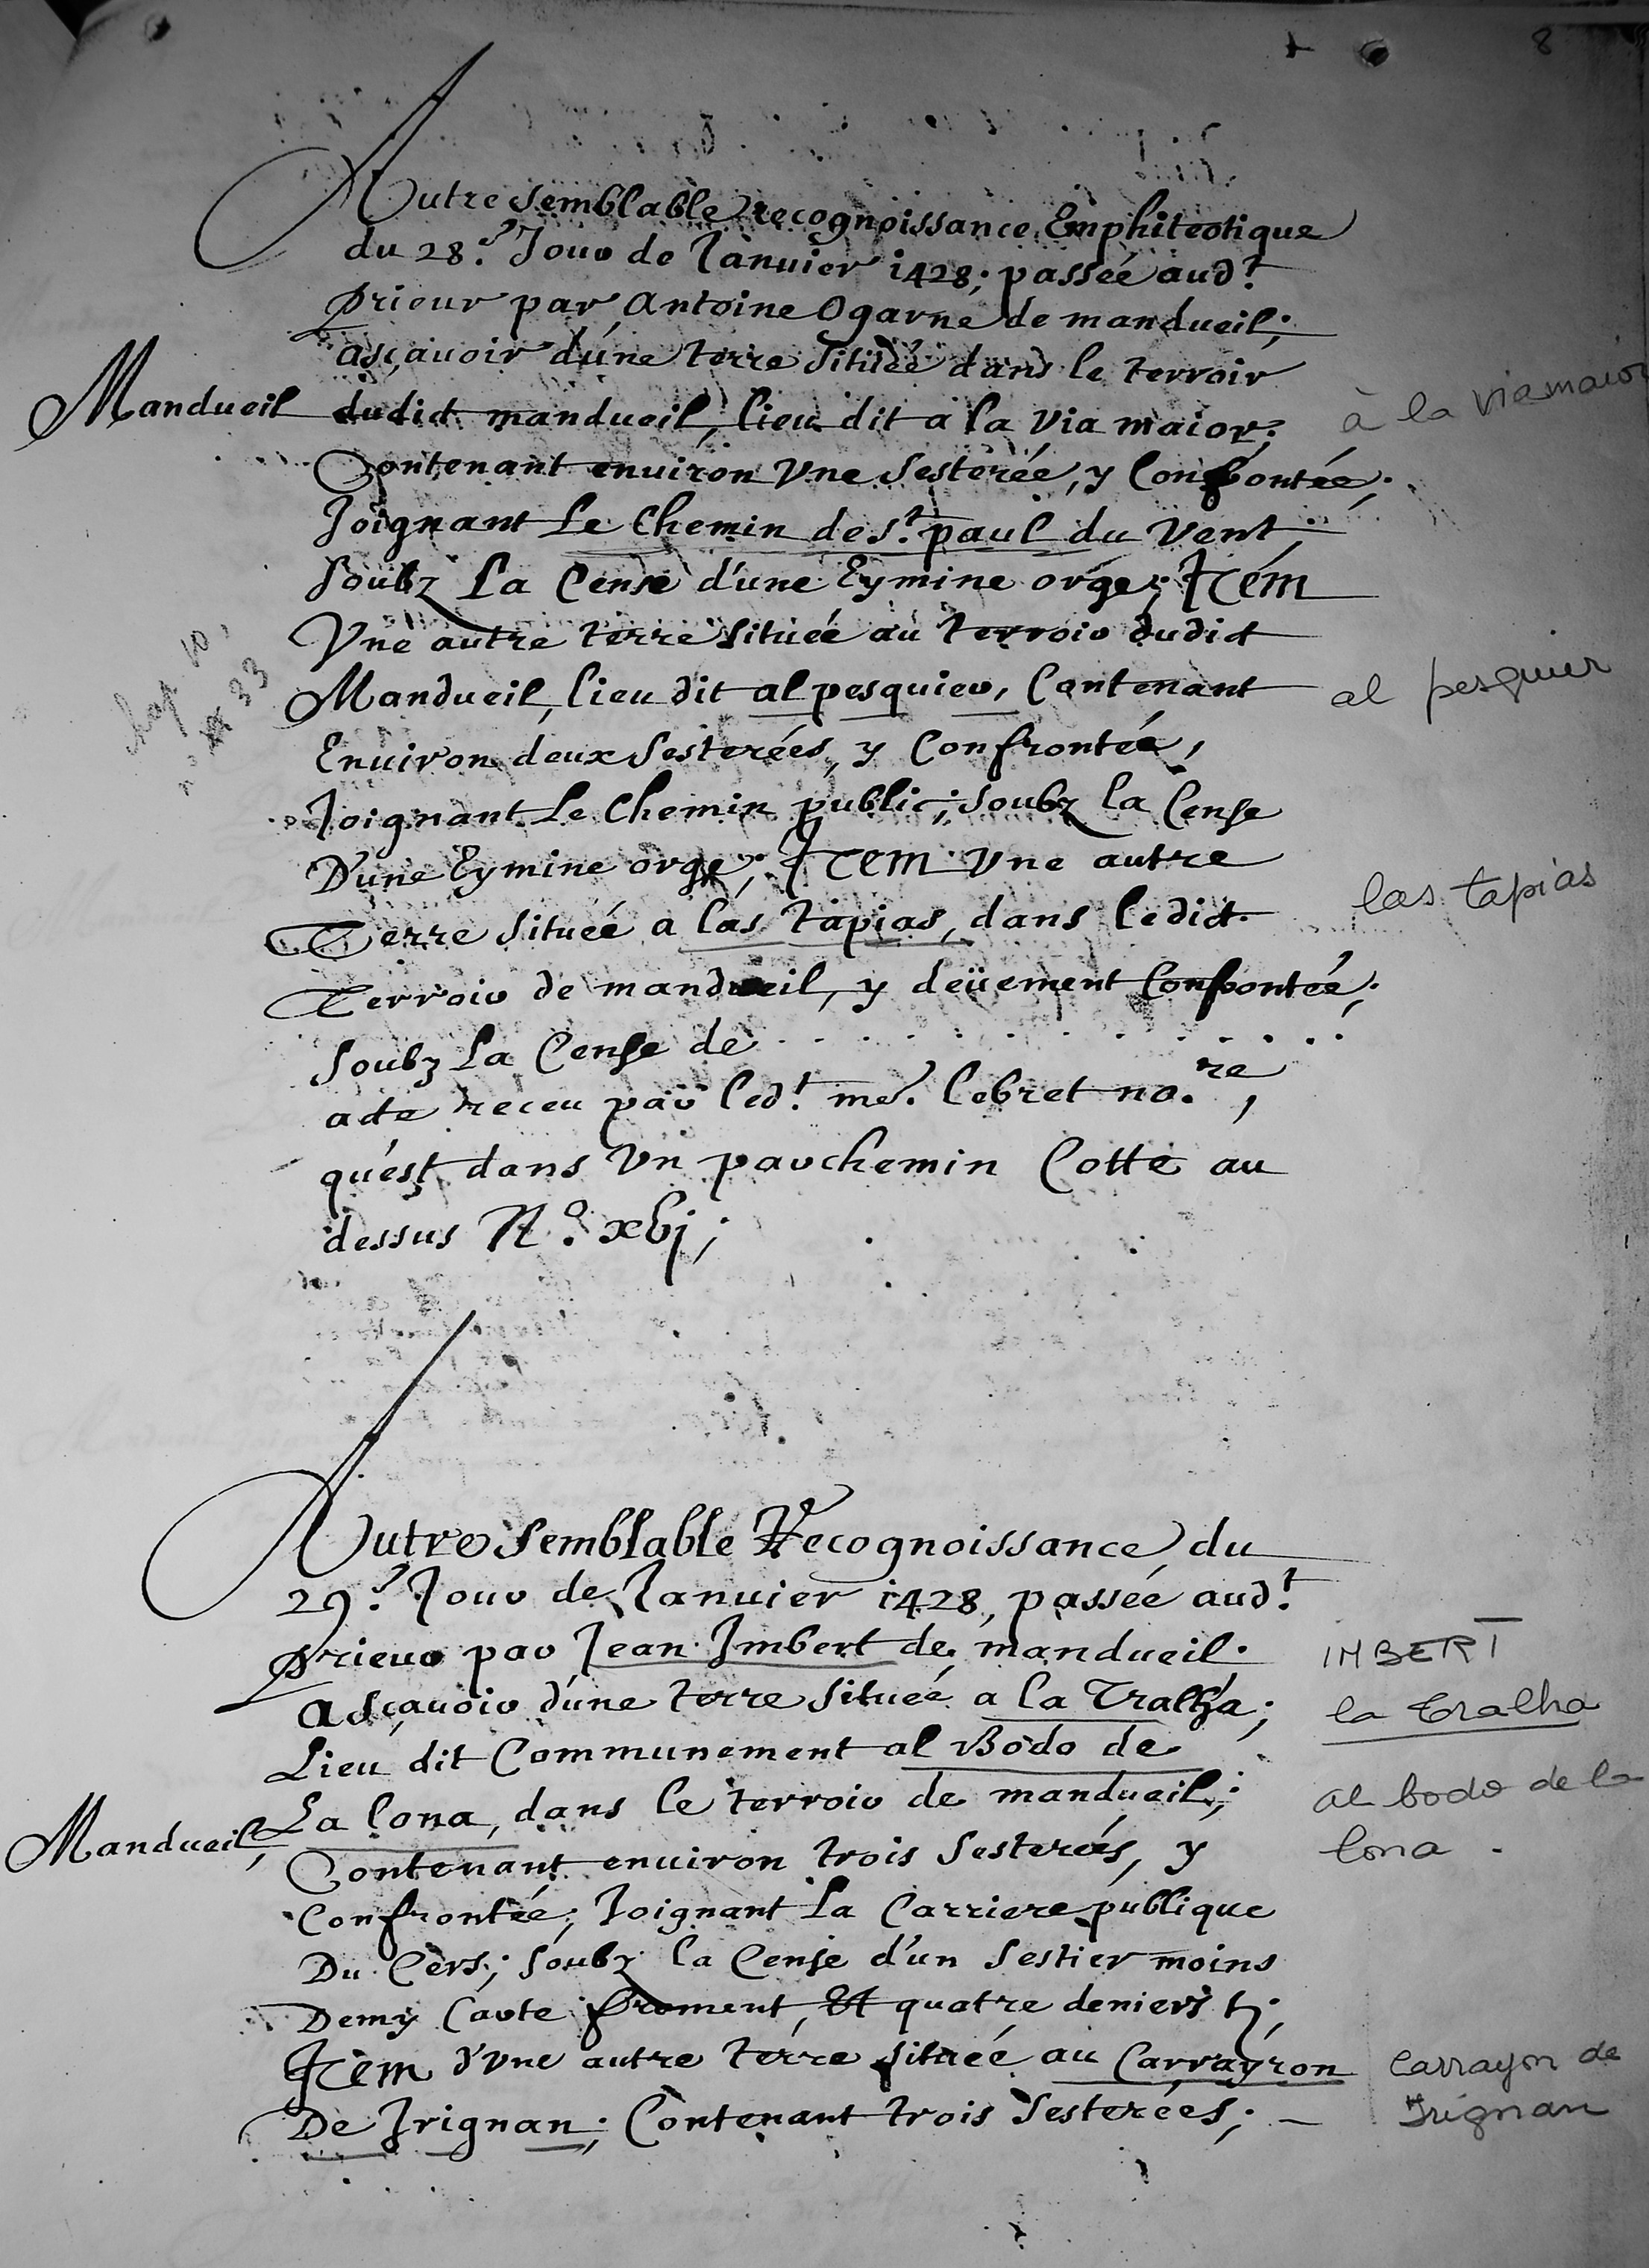 8
Autre semblable recognoissance Emphiteotique
du 28.e Jour de Januier 1428; passée aud.t
prieur par Antoine Ogarne de mandueil;
asçauoir d'une terre Située dans le terroir
Mandueil
dudict mandueil, lieu dit a la via maior;
à la via maior
Contenant enuiron Vne Sesterée, y Confrontée;
Joignant Le Chemin de s.t paul du Vent;
Soubz La Cense d'une Eymine orge; Item
Vne autre terre Située au terroir dudict
Mandueil, lieu dit al pesquier, Contenant
al pesquier
n° 33
Enuiron deux Sesterées, y Confrontée,
Joignant Le Chemin public; Soubz la Cense
D'une Eymine orge; Item Vne autre
Terre Située a las tapias, dans ledict
las tapias
Terroir de mandueil, y deüement Confrontée;
Soubz La Cense de . . . . . . . . . . . . .
acte receu par led.t me. Lebret no.re,
qu'est dans Vn parchemin Cotté au
dessus N.o xbj;
Autre Semblable Recognoissance du
29.e Jour de Januier 1428, passée aud.t
Prieur par Jean Imbert de mandueil.
IMBERT
Asçauoir d'une terre Située a la Tralha;
la Tralha
Lieu dit Communement al Bodo de
La lona, dans le terroir de mandueil;
al bodo de la
lona.
Mandueil,
Contenant enuiron trois Sesterées, y
Confrontée; Joignant La Carriere publique
Du Cers; Soubz la Cense d'un Sestier moins
Demy Carte froment, Et quatre deniers tz;
Item d'vne autre terre Située au Carrayron
De Jrignan; Contenant trois Sesterées;
Carrayon de
Irignan